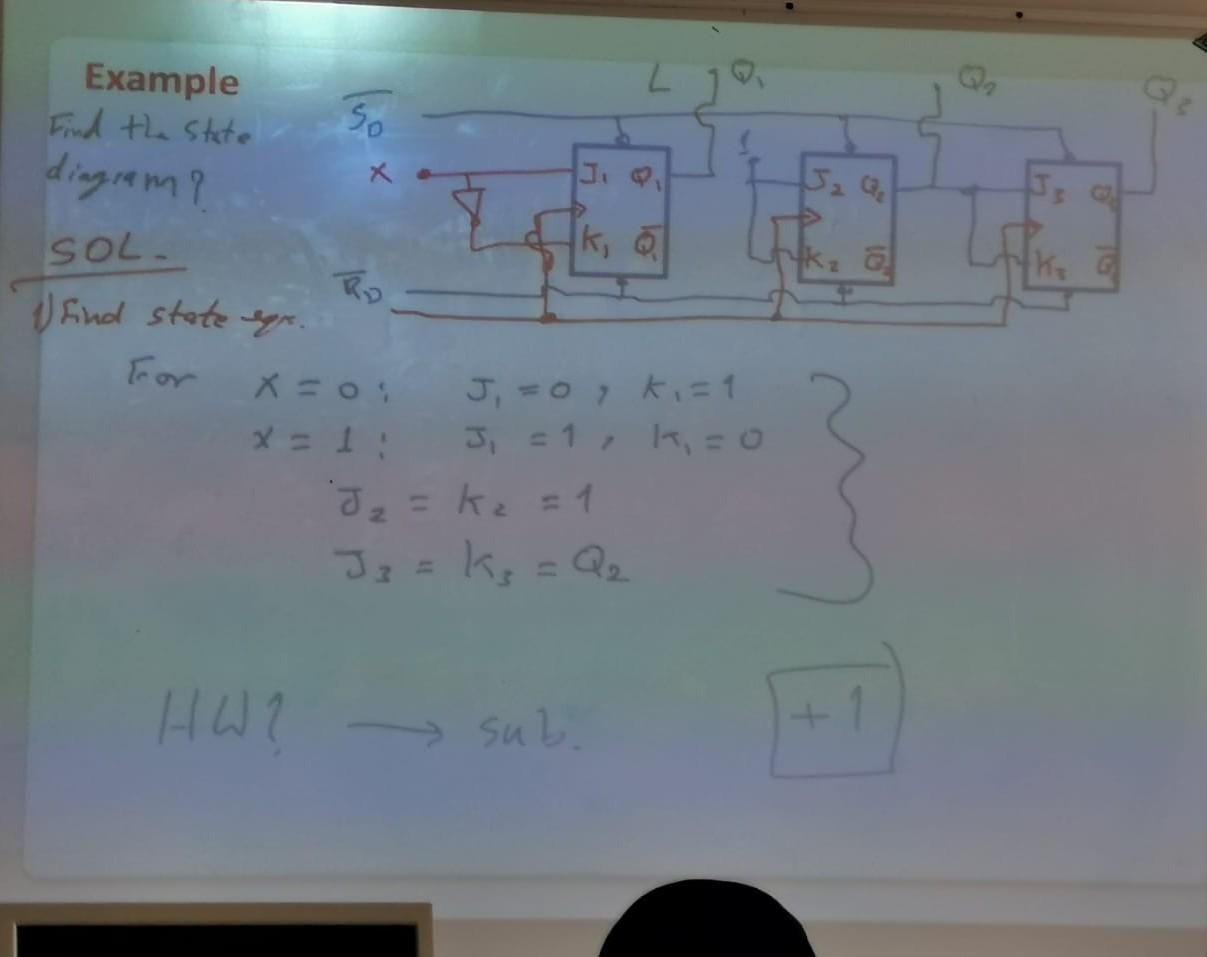 Example
Find the state
diagram?
SOL.
1) Find state eqn.
S̅D
X
R̅D
L Q₁
Q₂
Q₃
1
J₁ Q₁
K₁ Q̅₁
J₂ Q₂
K₂ Q̅₂
J₃
K₃
For X = 0 : J₁ = 0 , K₁ = 1
X = 1 : J₁ = 1 , K₁ = 0
J₂ = K₂ = 1
J₃ = K₃ = Q₂
HW? → sub. +1